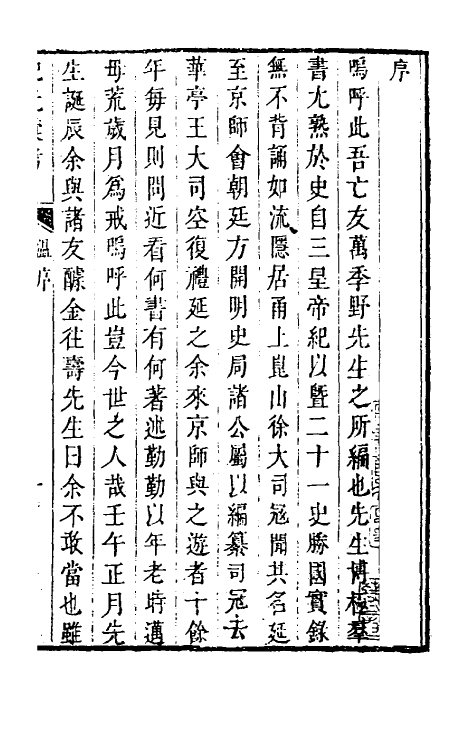 序
嗚呼此吾亡友萬季野先生之所編也先生博極羣
書尤熟於史自三皇帝紀以暨二十一史勝國實錄
無不背誦如流隱居甬上崑山徐大司冦聞其名延
至京師會朝廷方開明史局諸公屬以編纂司冦去
華亭王大司空復禮延之余來京師與之遊者十餘
年每見則問近看何書有何著述勤勤以年老時邁
毋荒歲月爲戒嗚呼此豈今世之人哉壬午正月先
生誕辰余與諸友醵金往壽先生曰余不敢當也雖
溫序